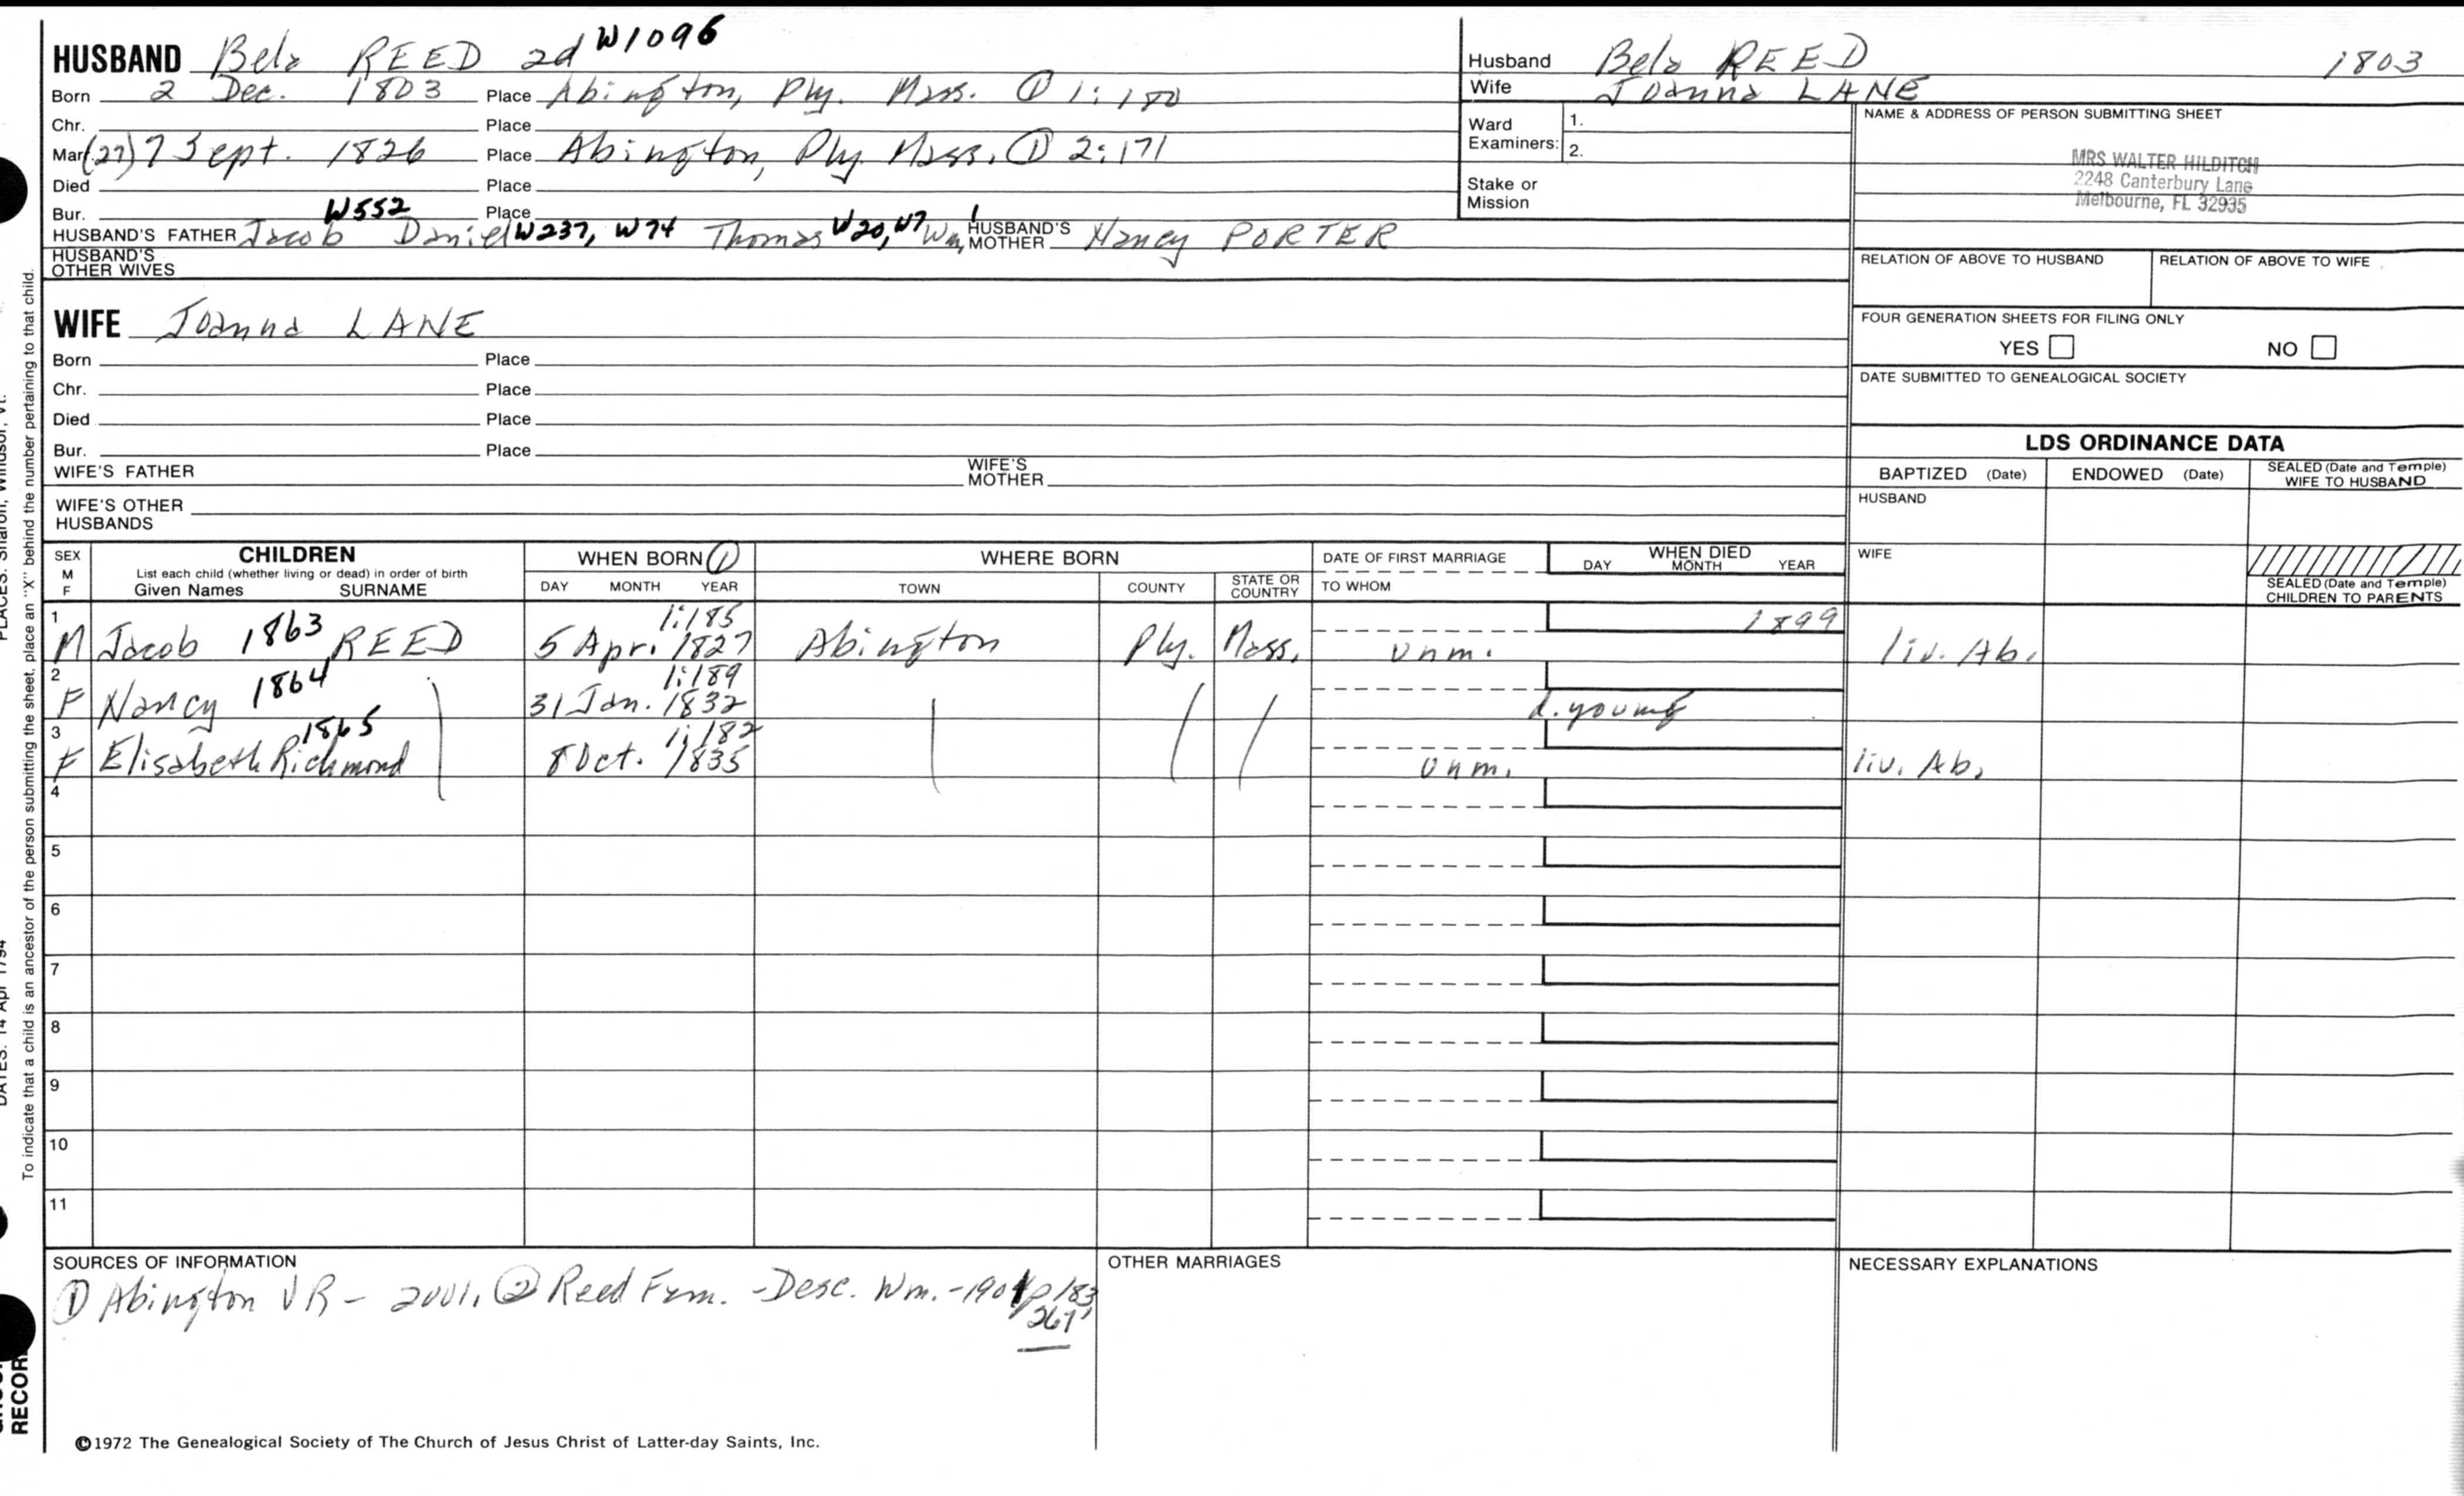 HUSBAND Bela REED 2d W1096
Born 2 Dec. 1803 Place Abington, Ply. Mass. ① 1:180
Chr. Place
Mar. (27) 7 Sept. 1826 Place Abington, Ply Mass. ① 2:171
Died Place
Bur. Place
HUSBAND'S FATHER Jacob W552 Daniel W237, W74 Thomas W20, W7 Wm, 1 HUSBAND'S MOTHER Nancy PORTER
HUSBAND'S OTHER WIVES
WIFE Joanna LANE
Born Place
Chr. Place
Died Place
Bur. Place
WIFE'S FATHER WIFE'S MOTHER
WIFE'S OTHER HUSBANDS
Husband Bela REED 1803
Wife Joanna LANE
Ward Examiners: 1.
2.
Stake or Mission
NAME & ADDRESS OF PERSON SUBMITTING SHEET
MRS WALTER HILDITCH
2248 Canterbury Lane
Melbourne, FL 32935
RELATION OF ABOVE TO HUSBAND RELATION OF ABOVE TO WIFE
FOUR GENERATION SHEETS FOR FILING ONLY
YES NO
DATE SUBMITTED TO GENEALOGICAL SOCIETY
LDS ORDINANCE DATA
BAPTIZED (Date) ENDOWED (Date) SEALED (Date and Temple) WIFE TO HUSBAND
HUSBAND
WIFE
SEALED (Date and Temple) CHILDREN TO PARENTS
SEX M F CHILDREN WHEN BORN ① WHERE BORN DATE OF FIRST MARRIAGE WHEN DIED
List each child (whether living or dead) in order of birth
Given Names SURNAME DAY MONTH YEAR TOWN COUNTY STATE OR COUNTRY TO WHOM DAY MONTH YEAR
1 1:185 1899
M Jacob 1863 REED 5 Apr. 1827 Abington Ply. Mass. unm. liv. Ab.
2 1:189
F Nancy 1864 31 Jan. 1832 d. young
3 1865 1:182
F Elisabeth Richmond 8 Oct. 1835 unm. liv. Ab.
4
5
6
7
8
9
10
11
SOURCES OF INFORMATION
① Abington VR - 2001, ② Reed Fam. - Desc. Wm. - 1901 p183,
267
OTHER MARRIAGES
NECESSARY EXPLANATIONS
©1972 The Genealogical Society of The Church of Jesus Christ of Latter-day Saints, Inc.
To indicate that a child is an ancestor of the person submitting the sheet, place an "X" behind the number pertaining to that child.
PLACES: Sharon, Windsor, Vt.
DATES: 14 Apr 1794
RECOR